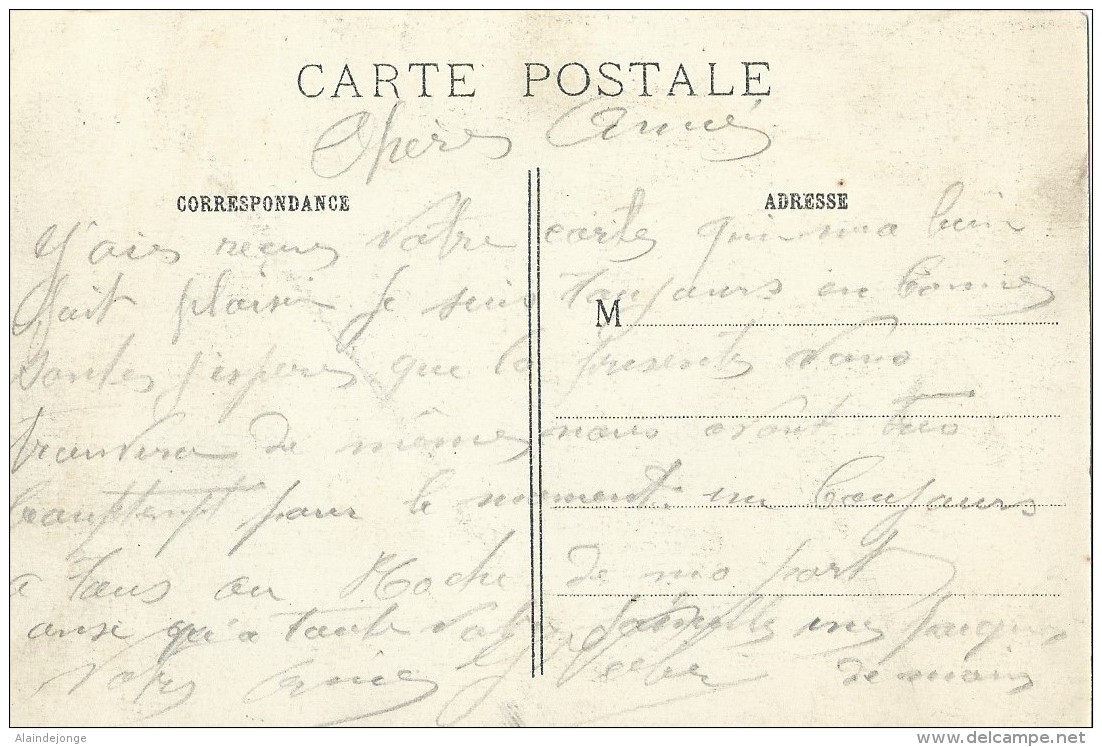 CARTE POSTALE
Chères Amié
CORRESPONDANCE
ADRESSE
J'aies reçus votre cartes qui ma bien
fait plaisir Je suis toujours en bonnes
M
santes j'esperes que la presentes vous
trouvera de mêmes nous avont tres
beauptempt pour le moment. un bonjours
a tous au Roche de ma part
ansi qu'a toute votre famille une
votres amies de main
Alaindejonge
delcampe.net